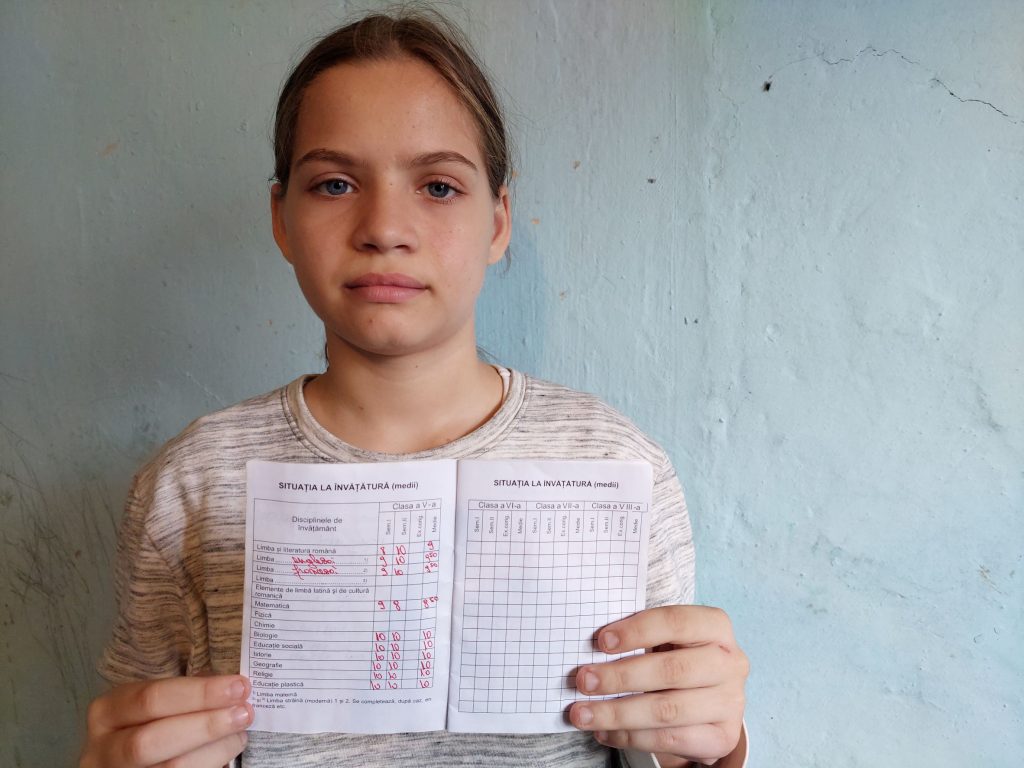 SITUAȚIA LA ÎNVĂȚĂTURĂ (medii)
Disciplinele de învățământ
Clasa a V-a
Sem.I Sem.II Ex.corig. Medie
Limba și literatura română 8 10 9
Limba engleză 1) 9 10 9⁵⁰
Limba franceză 2) 9 10 9⁵⁰
Limba 3)
Elemente de limbă latină și de cultură
romanică
Matematică 9 8 8⁵⁰
Fizică
Chimie
Biologie 10 10 10
Educație socială 10 10 10
Istorie 10 10 10
Geografie 10 10 10
Religie 10 10 10
Educație plastică 10 10 10
Limba maternă
și Limba străină (modernă) 1 și 2. Se completează, după caz, en
franceză etc.
SITUAȚIA LA ÎNVĂȚĂTURĂ (medii)
Clasa a VI-a Clasa a VII-a Clasa a VIII-a
Sem.I Sem.II Ex.corig. Medie Sem.I Sem.II Ex.corig. Medie Sem.I Sem.II Ex.corig. Medie